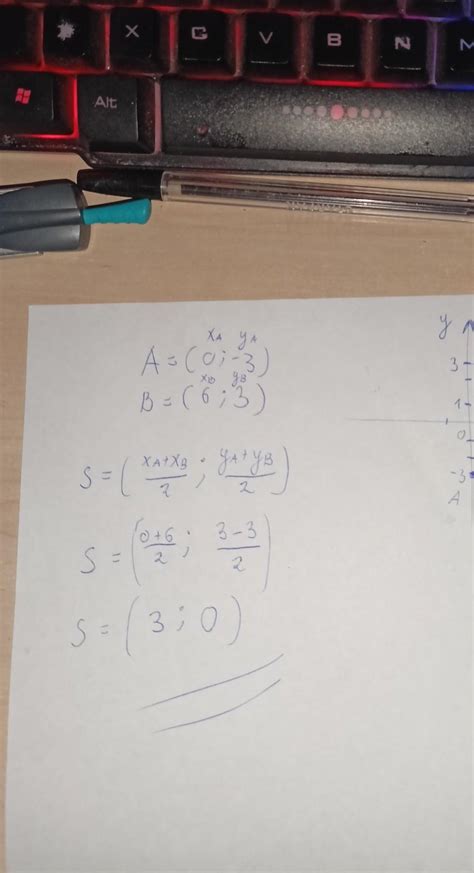 X C V B N M
Alt
x_A y_A
A = (0 ; -3)
x_B y_B
B = (6 ; 3)
S = ( (x_A + x_B)/2 ; (y_A + y_B)/2 )
S = ( (0+6)/2 ; (3-3)/2 )
S = ( 3 ; 0 )
y
3
1
0
-3
A